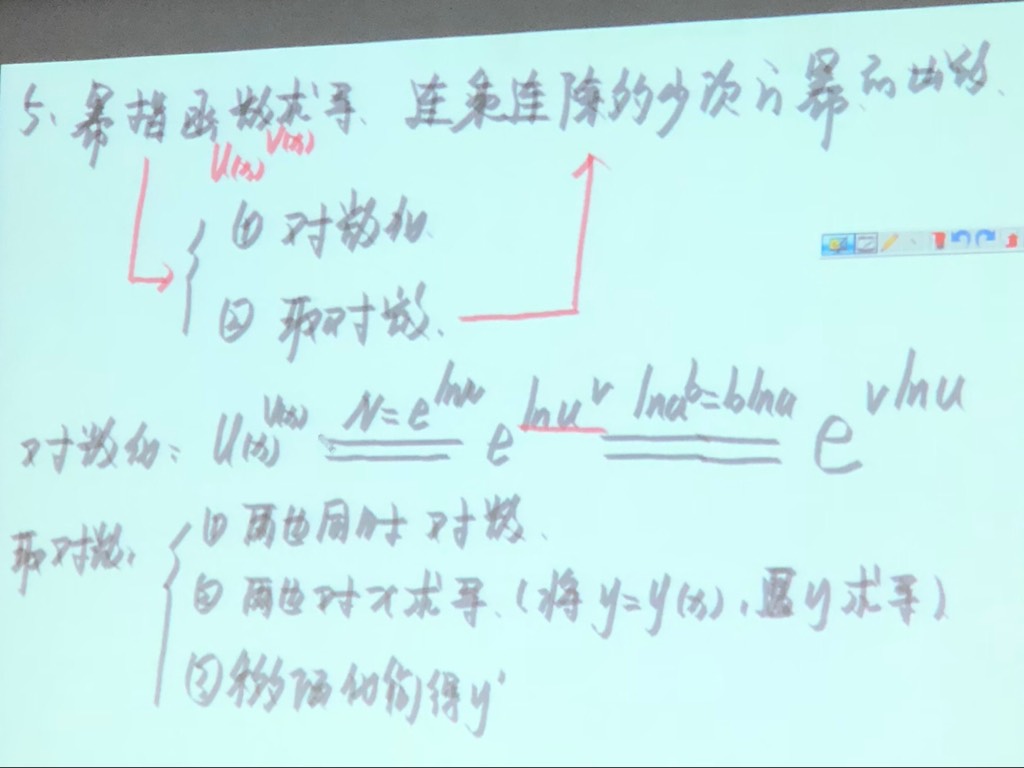 5、幂指函数求导、连乘连除的少次方幂函数
U(x) V(x)
① 对数化
② 取对数、
对数化: U(x)^V(x) N=e^lnN e^lnu^v lna^b=blna e^vlnu
取对数、 ① 两边同时对数、
② 两边对x求导、(将y=y(x),遇y求导)
③ 移项化简得y'